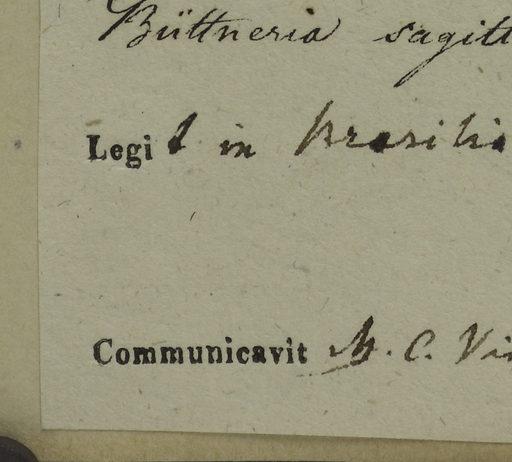 Büttneria sagitt
Legit in Brasilia
Communicavit M. C. Vin